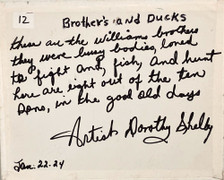 12
Brother's and Ducks
these are the Williams brothers
they were busy bodies, loved
to fight and, fish, and hunt
here are eight out of the ten
sons, in the good old days
Artist Dorothy Shelby
Jan. 22-24